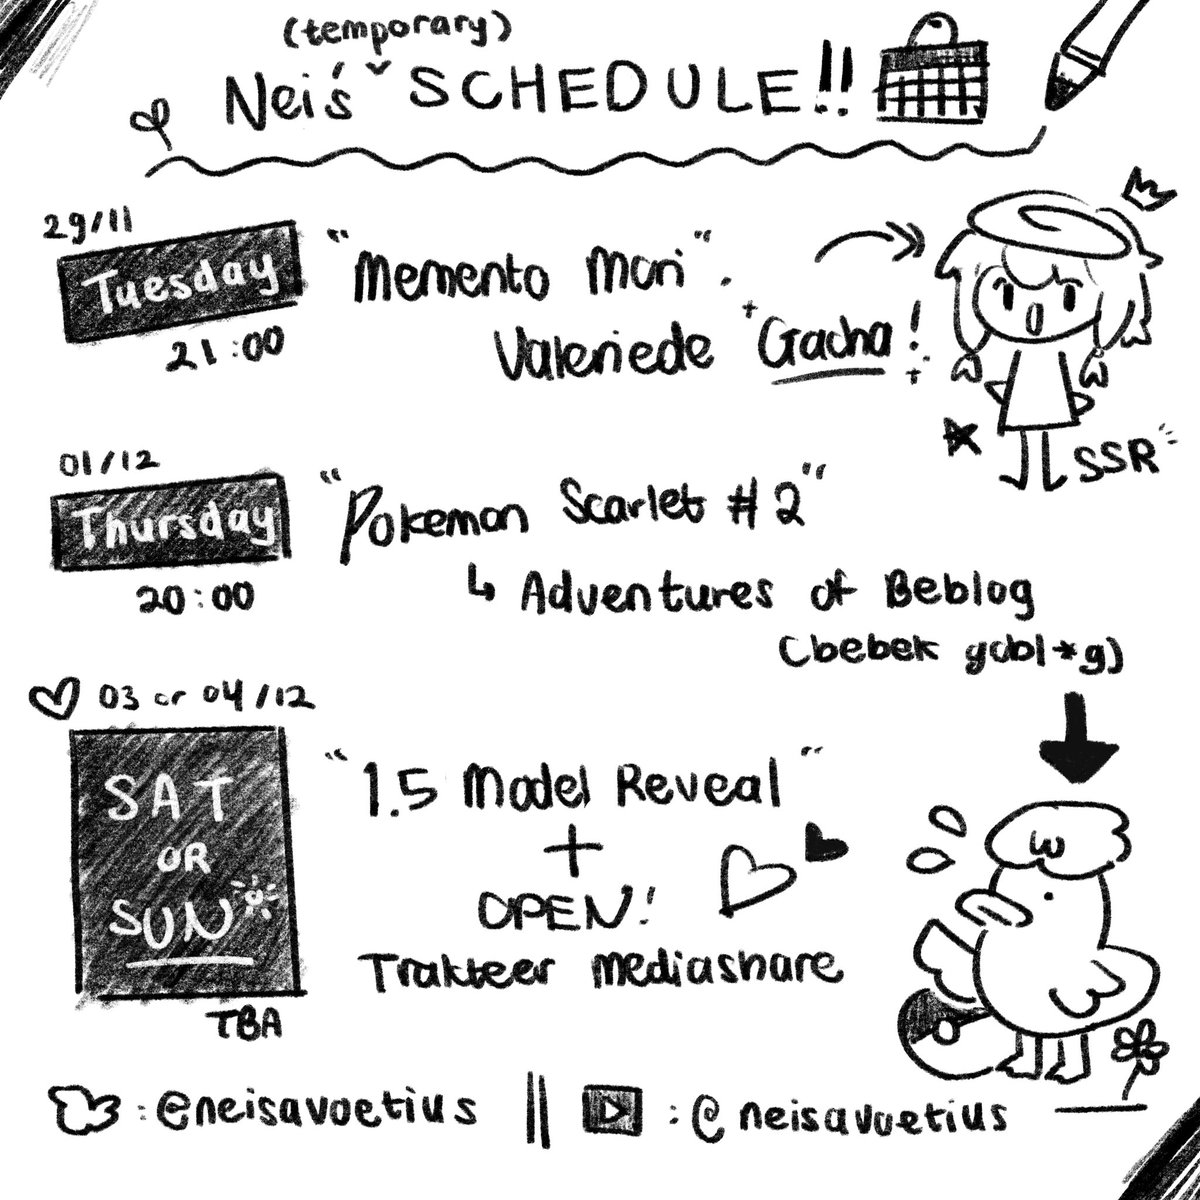 (temporary)
Nei's SCHEDULE!!
29/11
Tuesday
21:00
"Memento Mori".
Valeriede Gacha!
SSR
01/12
Thursday
20:00
"Pokemon Scarlet #2"
↳ Adventures of Beblog
(bebek gobl*g)
03 or 04/12
SAT
OR
SUN
TBA
"1.5 Model Reveal"
+
OPEN!
Trakteer mediashare
: @neisavoetius || : @neisavoetius